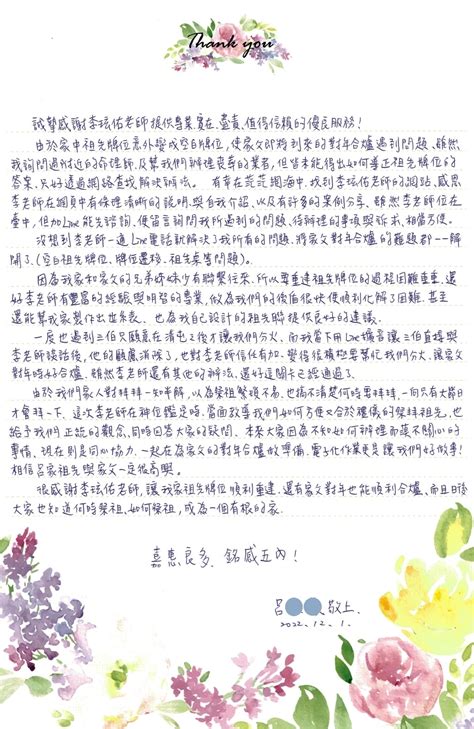 Thank you
誠摯感謝李玹佑老師提供專業、實在、盡責、值得信賴的優良服務！
由於家中祖先牌位意外變成空白牌位，使家父即將到來的對年合爐遇到問題，雖然
我詢問過附近的命理師，及幫我們辦理喪葬的業者，但皆未能得出如何導正祖先牌位的
答案，只好透過網路查找解決辦法。有幸在茫茫網海中，找到李玹佑老師的網站，感恩
李老師在網頁中有條理清晰的說明，與自我介紹，以及有許多的案例分享，雖然李老師位在
臺中，但加Line能先諮詢，便留言詢問我所遇到的問題、待辦理的事情與訴求，相當方便。
沒想到李老師一通Line電話就解決了我所有的問題，將家父對年合爐的難題都一一解
開了(空白祖先牌位、牌位遷移、祖先喜簿問題)。
因為我家和家父的兄弟姊妹少有聯繫往來，所以要重建祖先牌位的過程困難重重，還
好李老師有豐富的經驗與明智的專業，做為我們的後盾很快便順利化解了困難，甚至
還能幫我家製作出世系表，也為我自己設計的祖先聯提供良好的建議。
一度也遇到三伯只願意在清屯之後才讓我們分火，而我當下用Line擴音讓三伯直接與
李老師談話後，他的顧慮消除了，也對李老師信任有加，變得很積極要幫忙我們分火，讓家父
對年時好合爐。雖然李老師還有其他的辦法，還好這關卡已經通過了。
由於我們家人對拜拜一知半解，以為祭祖繁瑣不易，也搞不清楚何時要拜拜，一向只有大節日
才會拜一下，這次李老師在神位鑑定時，當面教導我們如何方便又合於禮儀的祭拜祖先，也
給予我們正統的觀念，同時回答大家的疑問。本來大家因為不知如何辦理而漠不關心的
事情，現在則是同心協力、一起在為家父的對年合爐做準備，電子化作業更是讓我們好做事！
相信呂家祖先與家父一定很高興。
很感謝李玹佑老師，讓我家祖先牌位順利重建，還有家父對年也能順利合爐，而且日後
大家也知道何時祭祖、如何祭祖，成為一個有根的家。
嘉惠良多，銘感五內！
呂 敬上
2022.12.1.